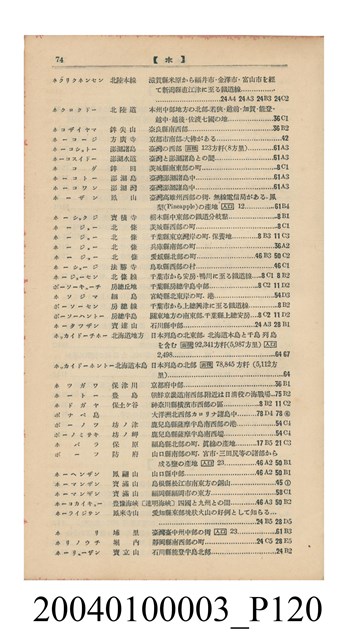 74 【ホ】
ホクリクホンセン 北陸本線 滋賀縣米原から福井市・金澤市・富山市を經
て新潟縣直江津に至る鐵道線
24A4 24A3 24B3 24C2
ホクロクドー 北陸道 本州中部地方の北部.若狹・越前・加賀・能登・
越中・越後・佐渡七國の地 36C1
ホコザイヤマ 鉾尖山 奈良縣南西部 36B2
ホーコージ 方廣寺 京都市南部.大佛がある 42
ホーコショトー 澎湖諸島 臺灣の西部 面積 123方粁(8方里) 61A3
ホーコスイドー 澎湖水道 臺灣と澎湖諸島との間 61A3
ホコタ 鉾田 茨城縣南東部の町 8C1
ホーコトー 澎湖島 臺灣澎湖諸島中 61A3
ホーコワン 澎湖灣 臺灣澎湖諸島中 61A3
ホーザン 鳳山 臺灣高雄州西部の街.無線電信局がある.鳳
梨(Pineapple)の産地 人口 12 61B4
ホーシャクジ 寶積寺 栃木縣中東部の鐵道分岐點 8B1
ホージョー 北條 茨城縣西部の町 8C1
ホージョー 北條 千葉縣東京灣岸の町.保養地 8B3 11C3
ホージョー 北條 兵庫縣南部の町 36A2
ホージョー 北條 愛媛縣北部の町 46B3 50C2
ホーショージ 法勝寺 鳥取縣西部の村 46C1
ホージョーセン 北條線 千葉市から安房・鴨川に至る鐵道線 8C1 8B2
ボーソーキューチ 房總丘地 千葉縣房總半島中部 8C2 11D2
ホソジマ 細島 宮崎縣北東岸の町.港 54D3
ボーソーセン 房總線 千葉市から上總興津に至る鐵道線 8B2
ボーソーハントー 房總半島 關東地方の南東部.千葉縣上總安房 8C2 11D2
ホータツザン 寶達山 石川縣中部 24A3 28B1
ホッカイドーチホー 北海道地方 日本列島の北東部.北海道本島と千島列島
を含む 面積 92,341方粁(5,987方里) 人口
2,498 64 67
ホッカイドーホントー 北海道本島 日本列島の北部 面積 78,845方粁 (5,112方
里) 64
ホヅガワ 保津川 京都府中部 36B1
ホートー 豊島 朝鮮京畿道南西部.附近は日清役の海戰場 75B2
ホドガヤ 保土ケ谷 神奈川縣横濱市西部の區 8B2 11C2
ポナペ島 大洋洲北西部カロリナ諸島中 78D4 78④
ボーノツ 坊ノ津 鹿兒島縣薩摩半島南西部の港 54C4
ボーノミサキ 坊ノ岬 鹿兒島縣薩摩半島南西端 54C4
ホバラ 保原 福島縣北部の町.眞綿の産地 17B5 21C3
ボーフ 防府 山口縣南部の町.宮市・三田尻等の諸部から
成る.鹽の産地 人口 23 46A2 50B1
ホーベンザン 鳳翩山 山口縣中部 46A2 50B1
ホーマンザン 寶滿山 島根縣松江市南東方の銅山 45①
ホーマンザン 寶滿山 福岡縣福岡市の東方 58C1
ホヨカイキョー 豊豫海峽(速吸海峽) 四國と九州との間 46A3 50B2
ホーライジザン 鳳來寺山 愛知縣東部.狀火山の好例として知らる
24B5 28D5
ホリ 埔里 臺灣臺中州中部の街 人口 23 61B3
ホリノウチ 堀内 靜岡縣南西部の町 24C5 28E5
ホーリューザン 寶立山 石川縣能登半島北部 24B2
20040100003_P120